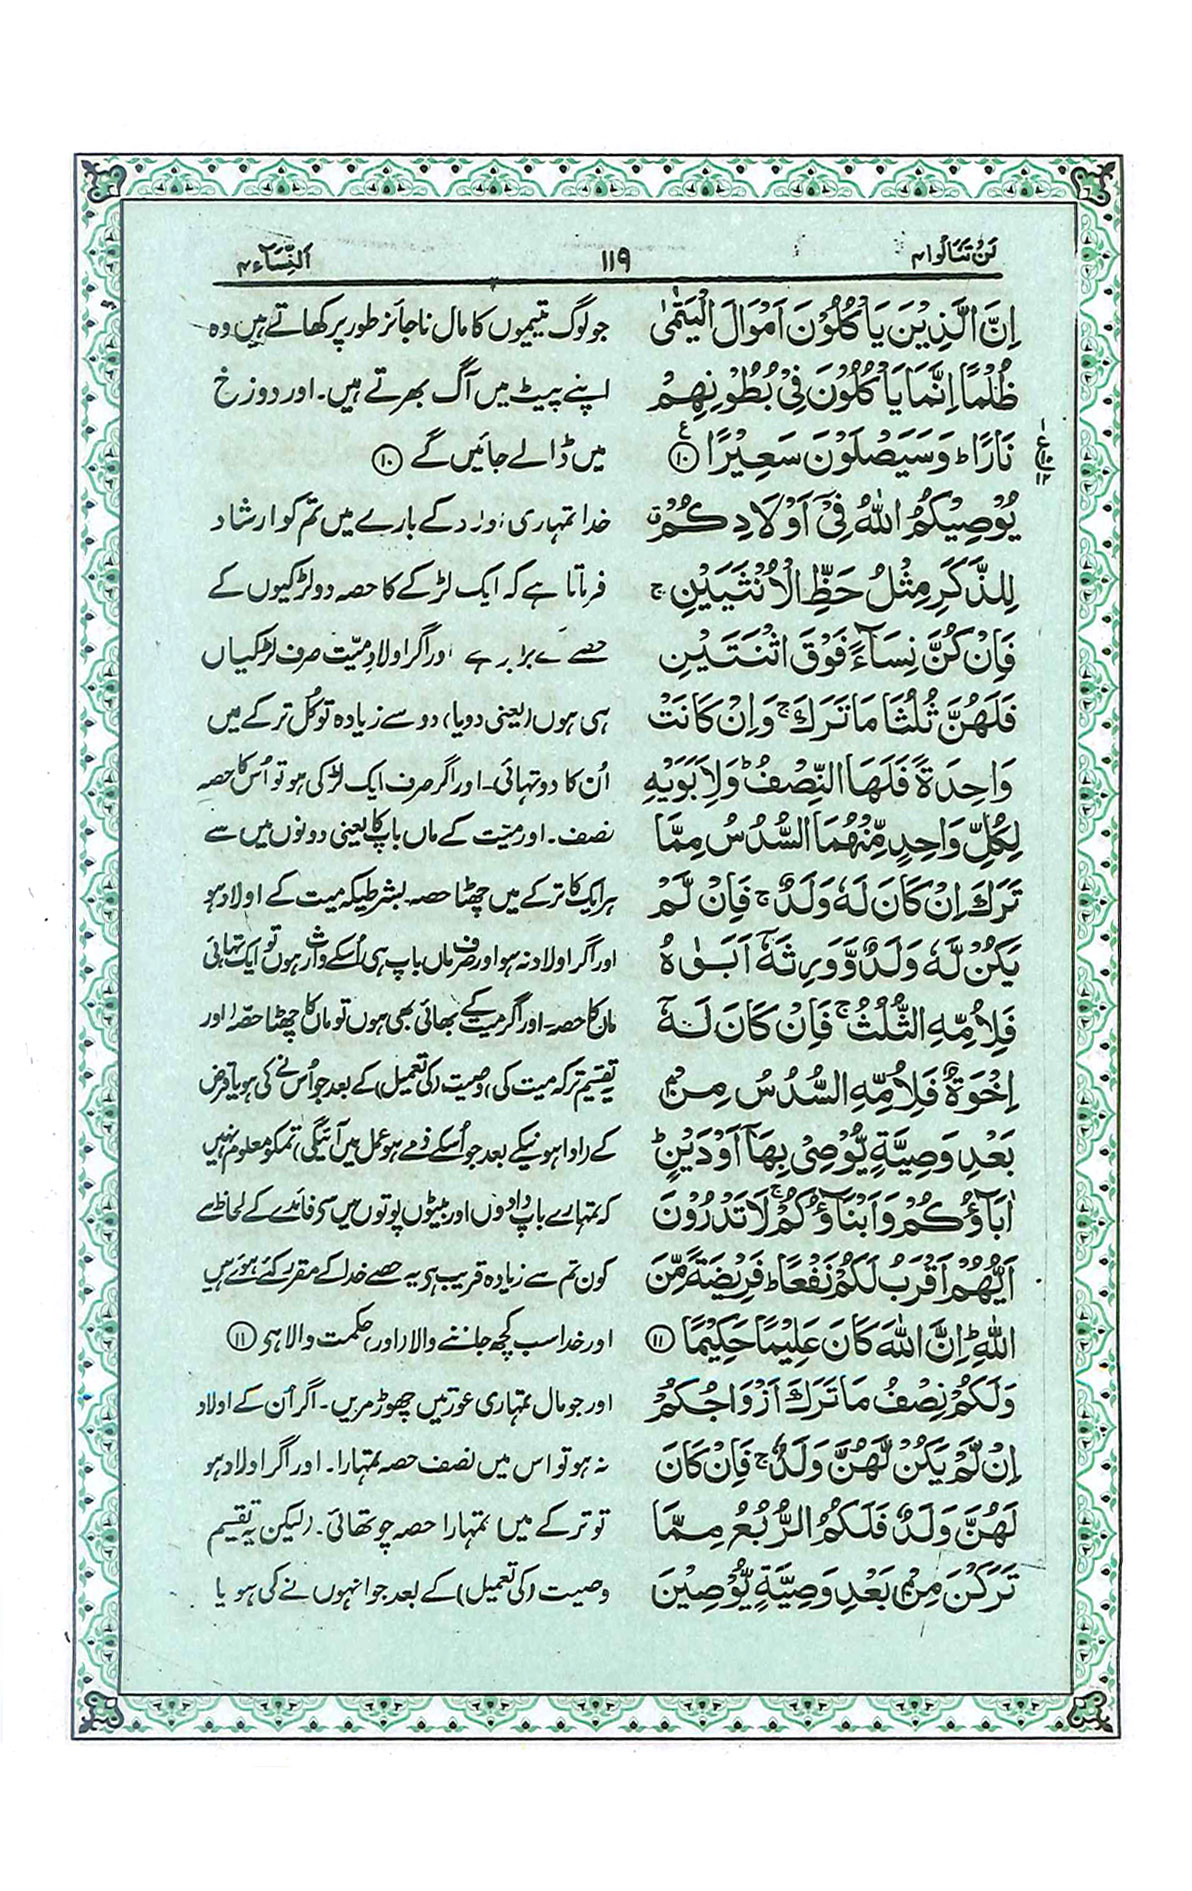 لَنْ تَنَالُوا ۴
۱۱۹
اَلنِّسَآء ۴
اِنَّ الَّذِيْنَ يَاْكُلُوْنَ اَمْوَالَ الْيَتٰمٰى
ظُلْمًا اِنَّمَا يَاْكُلُوْنَ فِيْ بُطُوْنِهِمْ
نَارًا ؕ وَسَيَصْلَوْنَ سَعِيْرًا ۱۰ ع
يُوْصِيْكُمُ اللّٰهُ فِيْٓ اَوْلَادِكُمْ ق
لِلذَّكَرِ مِثْلُ حَظِّ الْاُنْثَيَيْنِ ج
فَاِنْ كُنَّ نِسَآءً فَوْقَ اثْنَتَيْنِ
فَلَهُنَّ ثُلُثَا مَا تَرَكَ ج وَاِنْ كَانَتْ
وَاحِدَةً فَلَهَا النِّصْفُ ؕ وَلِاَبَوَيْهِ
لِكُلِّ وَاحِدٍ مِّنْهُمَا السُّدُسُ مِمَّا
تَرَكَ اِنْ كَانَ لَهٗ وَلَدٌ ج فَاِنْ لَّمْ
يَكُنْ لَّهٗ وَلَدٌ وَّوَرِثَهٗٓ اَبَوٰهُ
فَلِاُمِّهِ الثُّلُثُ ج فَاِنْ كَانَ لَهٗٓ
اِخْوَةٌ فَلِاُمِّهِ السُّدُسُ مِنْۢ
بَعْدِ وَصِيَّةٍ يُّوْصِيْ بِهَآ اَوْ دَيْنٍ ؕ
اٰبَآؤُكُمْ وَاَبْنَآؤُكُمْ ج لَا تَدْرُوْنَ
اَيُّهُمْ اَقْرَبُ لَكُمْ نَفْعًا ؕ فَرِيْضَةً مِّنَ
اللّٰهِ ؕ اِنَّ اللّٰهَ كَانَ عَلِيْمًا حَكِيْمًا ۱۱
وَلَكُمْ نِصْفُ مَا تَرَكَ اَزْوَاجُكُمْ
اِنْ لَّمْ يَكُنْ لَّهُنَّ وَلَدٌ ج فَاِنْ كَانَ
لَهُنَّ وَلَدٌ فَلَكُمُ الرُّبُعُ مِمَّا
تَرَكْنَ مِنْۢ بَعْدِ وَصِيَّةٍ يُّوْصِيْنَ
جو لوگ یتیموں کا مال ناجائز طور پر کھاتے ہیں وہ
اپنے پیٹ میں آگ بھرتے ہیں۔ اور دوزخ
میں ڈالے جائیں گے ۱۰
خدا تمہاری اولاد کے بارے میں تم کو ارشاد
فرماتا ہے کہ ایک لڑکے کا حصہ دو لڑکیوں کے
حصے کے برابر ہے اور اگر اولادِ میّت صرف لڑکیاں
ہی ہوں (یعنی دو یا) دو سے زیادہ تو کُل ترکے میں
اُن کا دو تہائی۔ اور اگر صرف ایک لڑکی ہو تو اُس کا حصہ
نصف۔ اور میّت کے ماں باپ کا یعنی دونوں میں سے
ہر ایک کا ترکے میں چھٹا حصہ بشرطیکہ میت کے اولاد ہو
اور اگر اولاد نہ ہو اور صرف ماں باپ ہی اُسکے وارث ہوں تو ایک تہائی
ماں کا حصہ۔ اور اگر میت کے بھائی بھی ہوں تو ماں کا چھٹا حصہ (اور
یہ تقسیم ترکہ میت کی) وصیت (کی تعمیل) کے بعد جو اُس نے کی ہو یا قرض
کے (ادا ہونیکے بعد جو اُسکے ذمے ہو عمل میں آئیگی) تمکو معلوم نہیں
کہ تمہارے باپ دادوں اور بیٹوں پوتوں میں سے فائدے کے لحاظ سے
کون تم سے زیادہ قریب ہی یہ حصے خدا کے مقرر کئے ہوئے ہیں
اور خدا سب کچھ جاننے والا (اور) حکمت والا ہی ۱۱
اور جو مال تمہاری عورتیں چھوڑ مریں۔ اگر اُن کے اولاد
نہ ہو تو اس میں نصف حصہ تمہارا۔ اور اگر اولاد ہو
تو ترکے میں تمہارا حصہ چوتھائی۔ (لیکن یہ تقسیم)
وصیت (کی تعمیل) کے بعد جو انہوں نے کی ہو یا